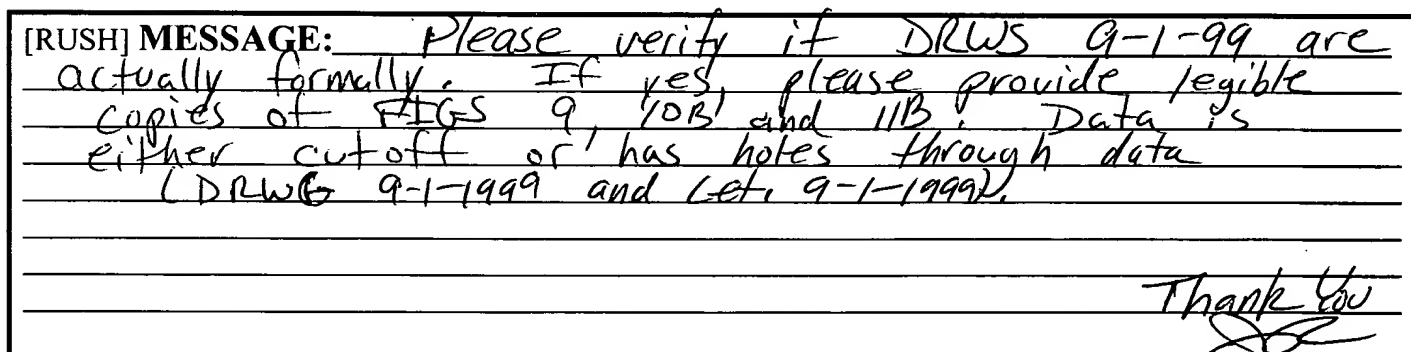 [RUSH] MESSAGE: Please verify if DRWS 9-1-99 are
actually formally. If yes, please provide legible
copies of FIGS 9, 10B and 11B. Data is
either cutoff or has holes through data
(DRWG 9-1-1999 and Let. 9-1-1999).
Thank You